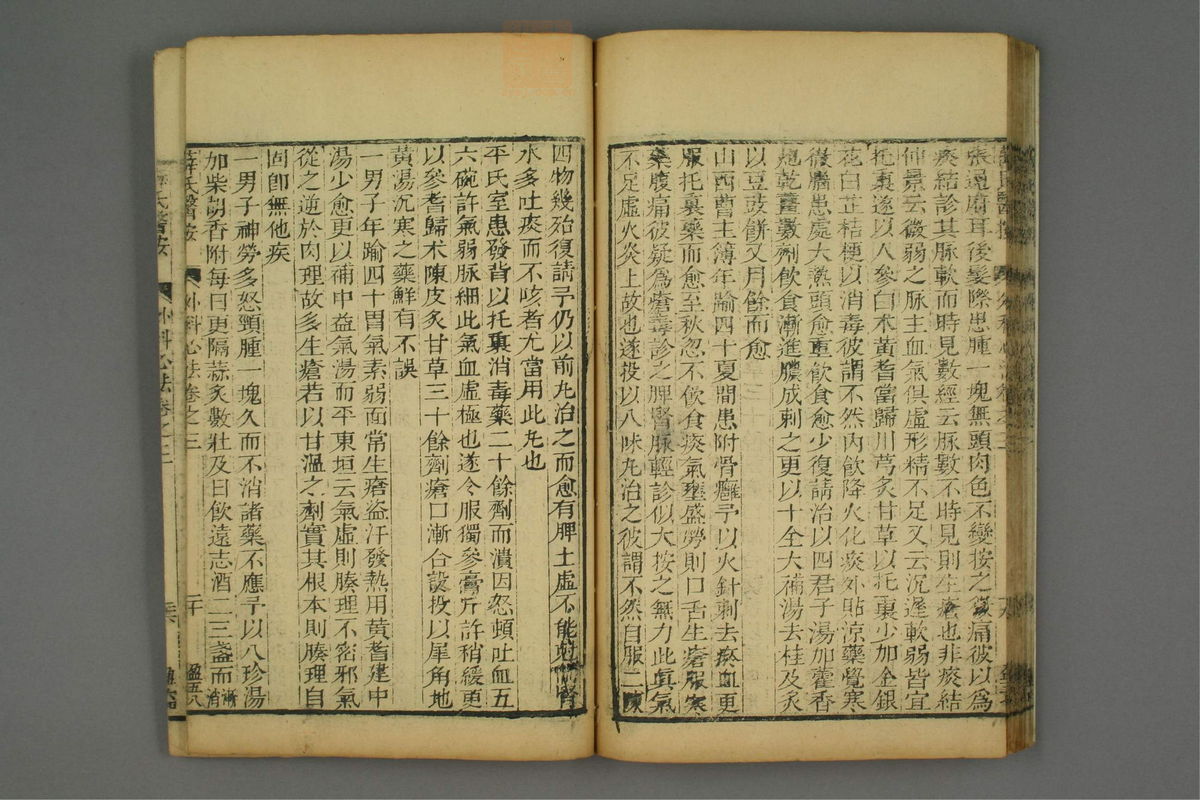 張通府耳後髮際患腫一塊無頭肉色不變按之微痛彼以為
痰結診其脉軟而時見數經云脉數不時見則生瘡也非痰結
仲景云微弱之脉主血氣俱虛形精不足又云沉遲軟弱皆宜
托裏遂以人參白术黃耆當歸川芎炙甘草以托裏少加金銀
花白芷桔梗以消毒彼謂不然内飲降火化痰外貼凉藥覺寒
微膈患處大熱頭愈重飲食愈少復請治以四君子湯加藿香
炮乾薑數劑飲食漸進膿成刺之更以十全大補湯去桂及炙
以豆豉餅又月餘而愈
山西曹主簿年踰四十夏間患附骨癰予以火針刺去瘀血更
服托裏藥而愈至秋忽不飲食痰氣壅盛勞則口舌生瘡服寒
藥腹痛彼疑爲瘡毒診之脾腎脉輕診似大按之無力此眞氣
不足虛火炎上故也遂投以八味丸治之彼謂不然自服二陳
四物幾殆復請予仍以前丸治之而愈有脾土虛不能尅制腎
水多吐痰而不咳者尤當用此丸也
平氏室患發背以托裏消毒藥二十餘劑而潰因怒頓吐血五
六碗許氣弱脉細此氣血虛極也遂令服獨參膏斤許稍緩更
以參耆歸术陳皮炙甘草三十餘劑瘡口漸合設投以犀角地
黄湯沉寒之藥鮮有不誤
一男子年踰四十胃氣素弱面常生瘡盜汗發熱用黄耆建中
湯少愈更以補中益氣湯而平東垣云氣虛則腠理不密邪氣
從之逆於肉理故多生瘡若以甘溫之劑實其根本則腠理自
固即無他疾
一男子神勞多怒頸腫一塊久而不消諸藥不應予以八珍湯
加柴胡香附每日更隔蒜炙數壯及日飲遠志酒二三盞而漸消
薛氏醫按 外科心法卷之三 二十 盈五八